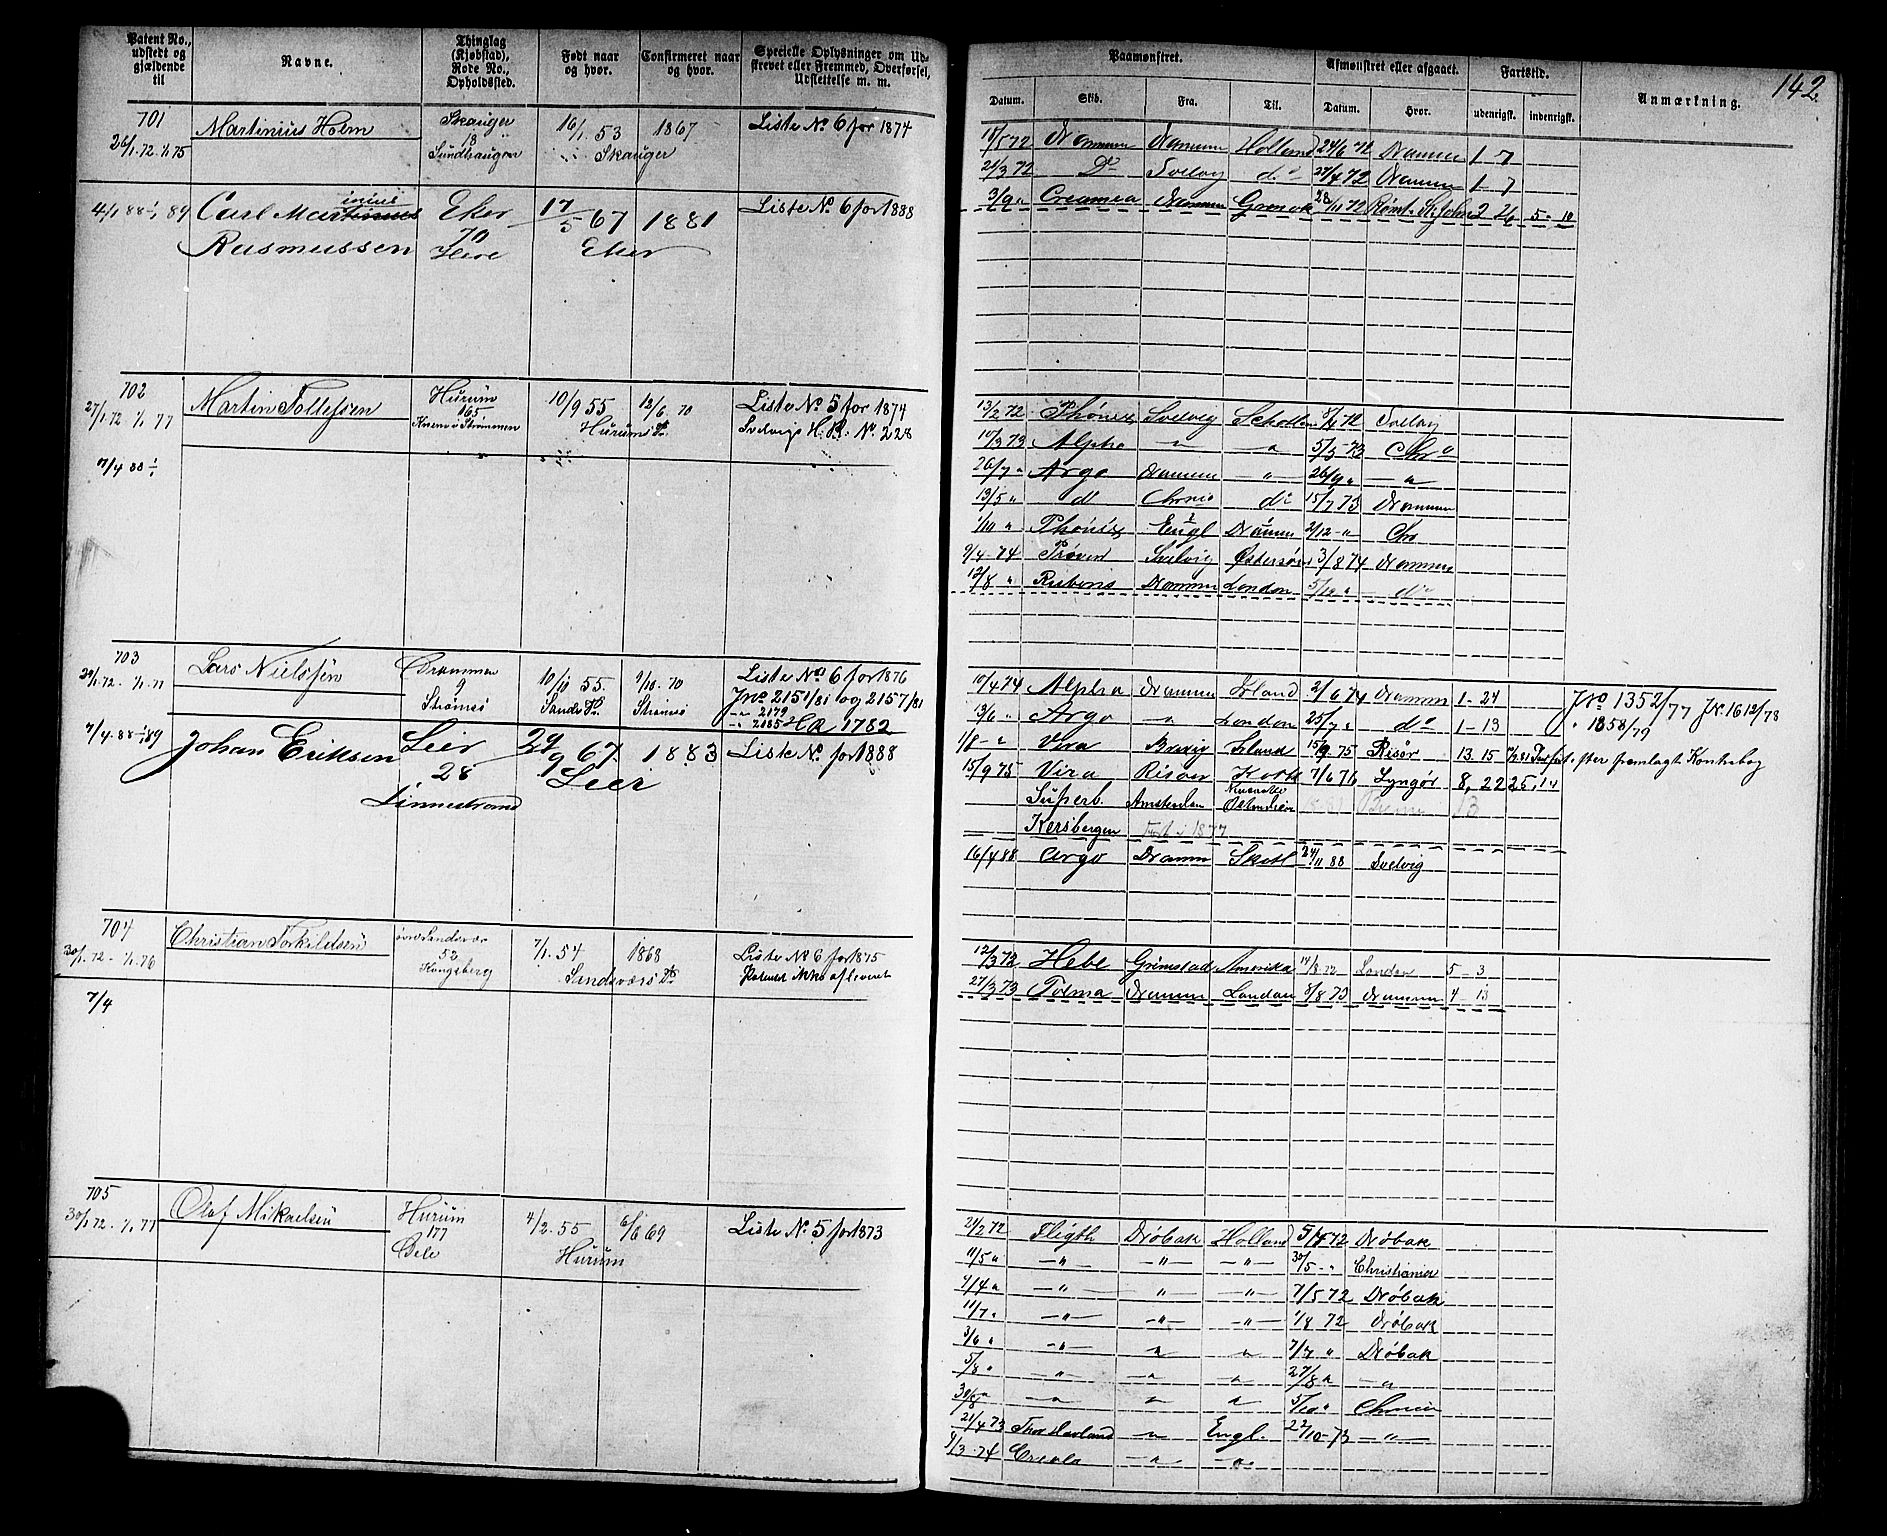 Patent No.,
udstedt og
gjældende
til
Navne.
Thinglag
(Kjøbstad),
Rode No.,
Opholdssted.
Født naar
og hvor.
Confirmeret naar
og hvor.
Specielle Oplysninger om Ud-
skrevet eller Fremmed, Overførsel,
Udslettelse m. m.
701
26/1.72. 1/1 75
Martinius Holm
Skauger
18
Sundhaugen
16/1. 53
1867
Skauger
Liste No. 6 for 1874
4/1 88 1/1 89
Carl Martinius
inius
Rasmussen
Eker
70
Here
17/5 67
1881
Eker
Liste No. 6 for 1888
702
27/1.72 1/1 77
Martin Tollefsen
Hurum
165
10/9 55
12/6. 70
Hurums
Liste No. 5 for 1874
Svelvigs H.R. No. 228
7/4 88 1/1
703
1/1. 77
Lars Nielssen
Drammen
9
Strømsø
10/10 55.
9/10. 70
Strømsø
Liste No. 6 for 1876
J No 2151/81 og 2157/81
" 2179
" 2185 HR 1782
7/4.88 1/1 89
Johan Eriksen
Leir
28
Linnestrand
29/9 67
1883
Leir
Liste No. for 1888
704
30/1.72. 1/1.76
Christian Torkildsen
52
Kongsberg
7/1. 54
1868
Sandsværs
Liste No 6 for 1875
Patentet ikke afleveret
7/4
705
30/1 72. 1/1 77
Olaf Mikaelsen
Hurum
177
4/2. 55
6/6 69
Hurum
Liste No. 5 for 1873
142
Paamønstret.
Afmønstret eller afgaaet.
Fartstid.
Anmærkning.
Datum.
Skib.
Fra.
Til.
Datum.
Hvor.
udenrigsk.
indenrigsk.
18/5 72 Drammen Drammen Holland 24/6 72 Drammen 1 7
21/3 72 Do Svelvig do 27/4 72 Drammen 1 7
3/9 " Drammen 28/11 72 Rømt St. John 2 26 5 10
13/2 72 Phønix Svelvig 5/4 72 Svelvig
10/3 73 Alpha " " 5/5 73 Chra
26/7 " Argo Drammen " 26/9 " "
13/5 " do Chrnia do 15/7 73 Drammen
1/10 " Phønix Engl Drammen 2/12 " Chra
9/4 74 Prøven Svelvig Østersøen 3/8 74 Drammen
12/8 " Rubens Drammen London 5/10 " do
10/4 74 Alpha Drammen Irland 2/6 74 Drammen 1 24 J No 1352/77 J No. 1612/78
13/6 " Argo " London 25/7 " do 1 13 " 1358/79
1/8 " Vira Island 15/9 75 Risør 13. 15 efter fremlagt Kontrabog
15/9 75 Vira Risøer 7/6 76 Lyngør 8, 22 25, 14
Superb. Amsterdam
Kersbergen Fart i 1877
16/4 88 Argo Dramm Skotl 24/11 88 Svelvig
12/3 72 Hebe Grimstad Amerika 14/8 72 London 5 3
27/3 73 Tolma Drammen London 8/8 73 Drammen 4 13
21/2 72 Fligth Drøbak Holland 5/4 72 Drøbak
11/5 " " " " 30/5 " Christiania
7/4 " " " " 7/5 72 Drøbak
11/7 " " " " 1/8 72 Drøbak
3/6 " " " " 2/7 " Drøbak
5/8 " " " " 27/8 " "
30/8 " " " " 5/10 " Chrnia
21/4 73 Thor Havland " Engl. 22/10 73 "
9/3 74 Creola " "